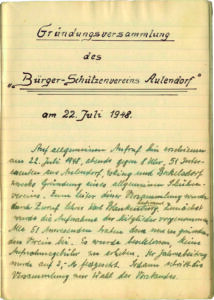 Gründungsversammlung
des
„Bürger-Schützenvereins Aulendorf"
am 22. Juli 1948.
Auf allgemeinen Aufruf hin erschienen
am 22. Juli 1948, abends gegen 8 Uhr, 51 Inter-
essenten aus Aulendorf, und
zwecks Gründung eines allgemeinen Schützen-
vereins. Zum Leiter dieser Versammlung wurde
durch Zuruf Herr
wurde die Aufnahme der Mitglieder vorgenommen.
Alle 51 Anwesenden traten dem neu zu gründen-
den Verein bei. Es wurde beschlossen, keine
Aufnahmegebühr zu erheben. Der Jahresbeitrag
wurde auf 2,- festgesetzt. Sodann schritt die
Versammlung zur Wahl des Vorstandes.